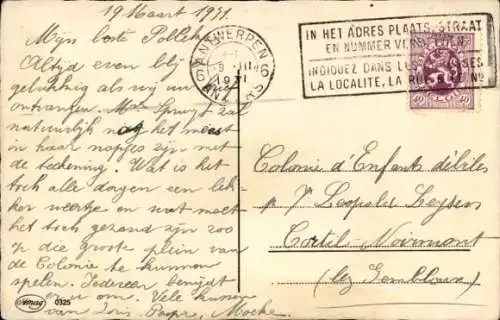 19 Maart 1931
Mijn beste Pollen
Altijd even blij en
gelukkig als wij uw
ontvangen. Mr Spruyt zal
natuurlijk nog het meest
in haar nopjes zijn met
de teekening. Wat is het
toch alle dagen een lek-
ker weertje en wat moet
het toch gezond zijn zoo
op die groote plein van
de Colonie te kunnen
spelen. Iedereen benijdt
er u om. Vele kussen
van Papa, Moeke
ANTWERPEN 6
ANVERS
1931
IN HET ADRES PLAATS, STRAAT
EN NUMMER
INDIQUEZ DANS
LA LOCALITE, LA RUE Nº
40 40
Colonie d'Enfants débiles
pr Leopold Leysens
Cortil-Noirmont
(lez Gembloux)
0325